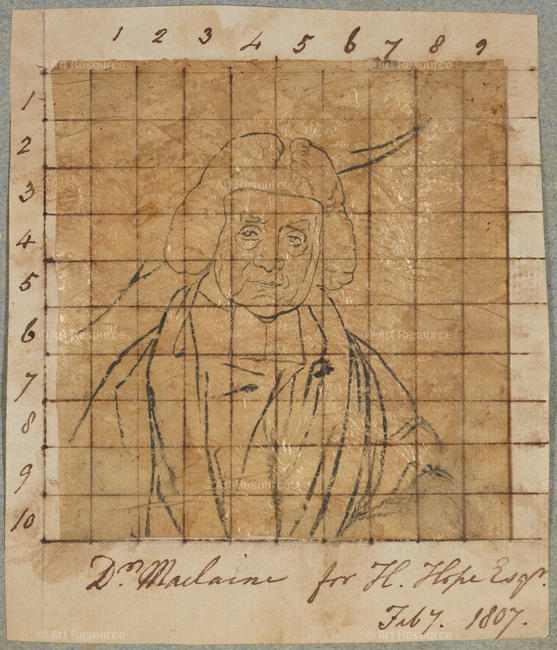 1 2 3 4 5 6 7 8 9
1
2
3
4
5
6
7
8
9
10
Dr. Maclaine for H. Hope Esqr.
Feby. 1807.
© Art Resource
© Art Resource
© Art Resource
© Art Resource
© Art Resource
© Art Resource
© Art Resource
© Art Resource